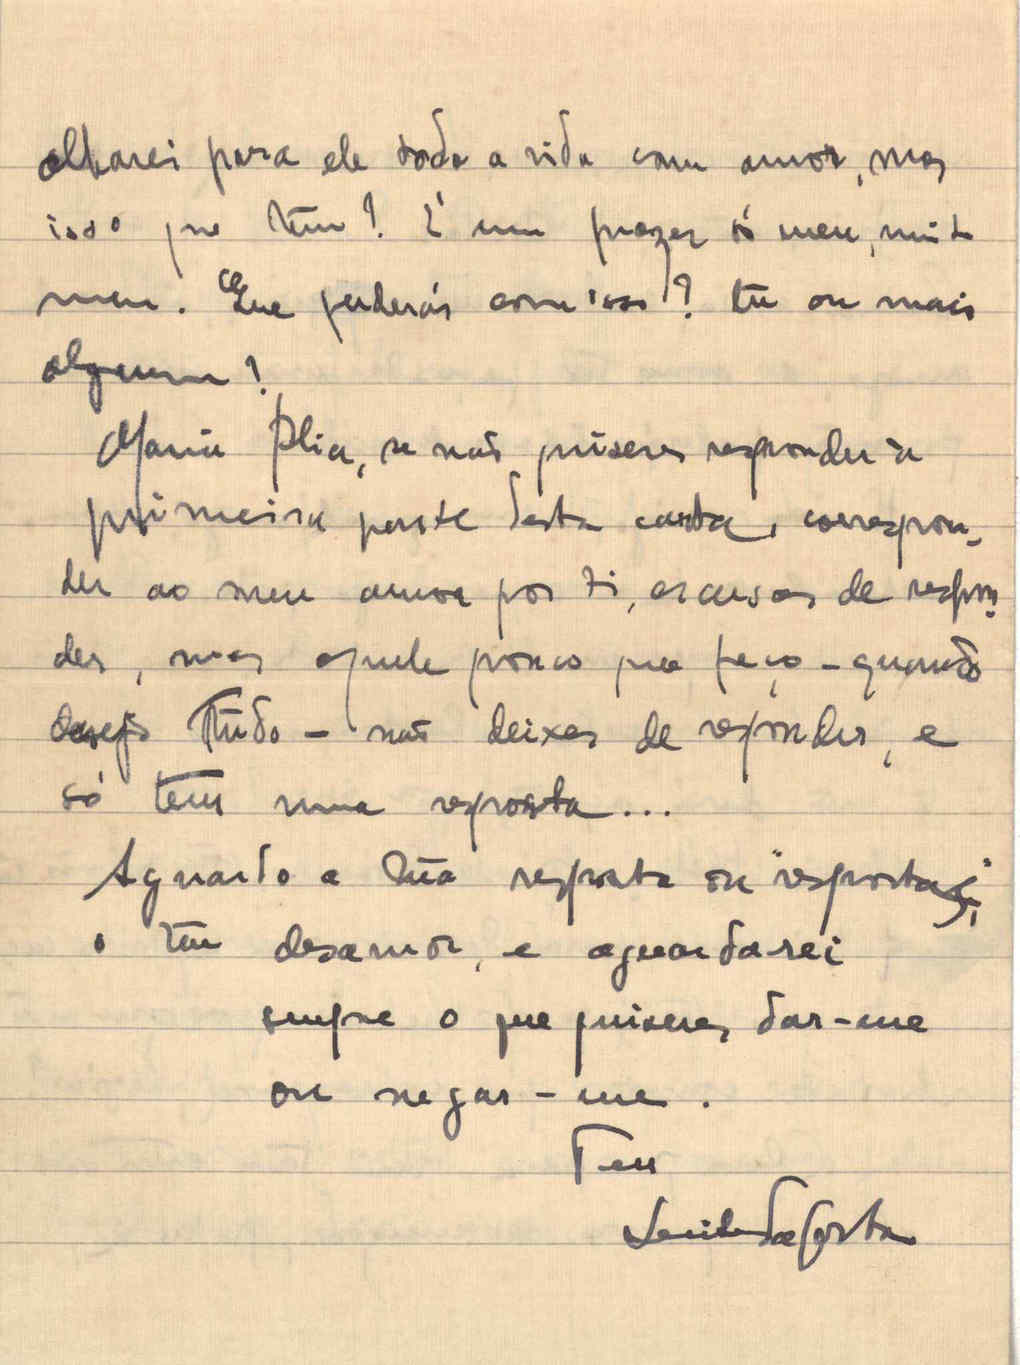 olharei para ele toda a vida com amor, mas
isso que tem? É um prazer só meu, muito
meu. Que perderás com isso? tu ou mais
alguem?
Maria Élia, se não quiseres responder à
primeira parte desta carta, correspon-
der ao meu amor por ti, escusas de respon-
der, mas aquele pouco que peço – quando
desejo tudo – não deixes de responder, e
só tem uma resposta...
Aguardo a tua resposta ou "respostas",
o teu desamor, e aguardarei
sempre o que quiseres dar-me
ou negar-me.
Teu
da Costa